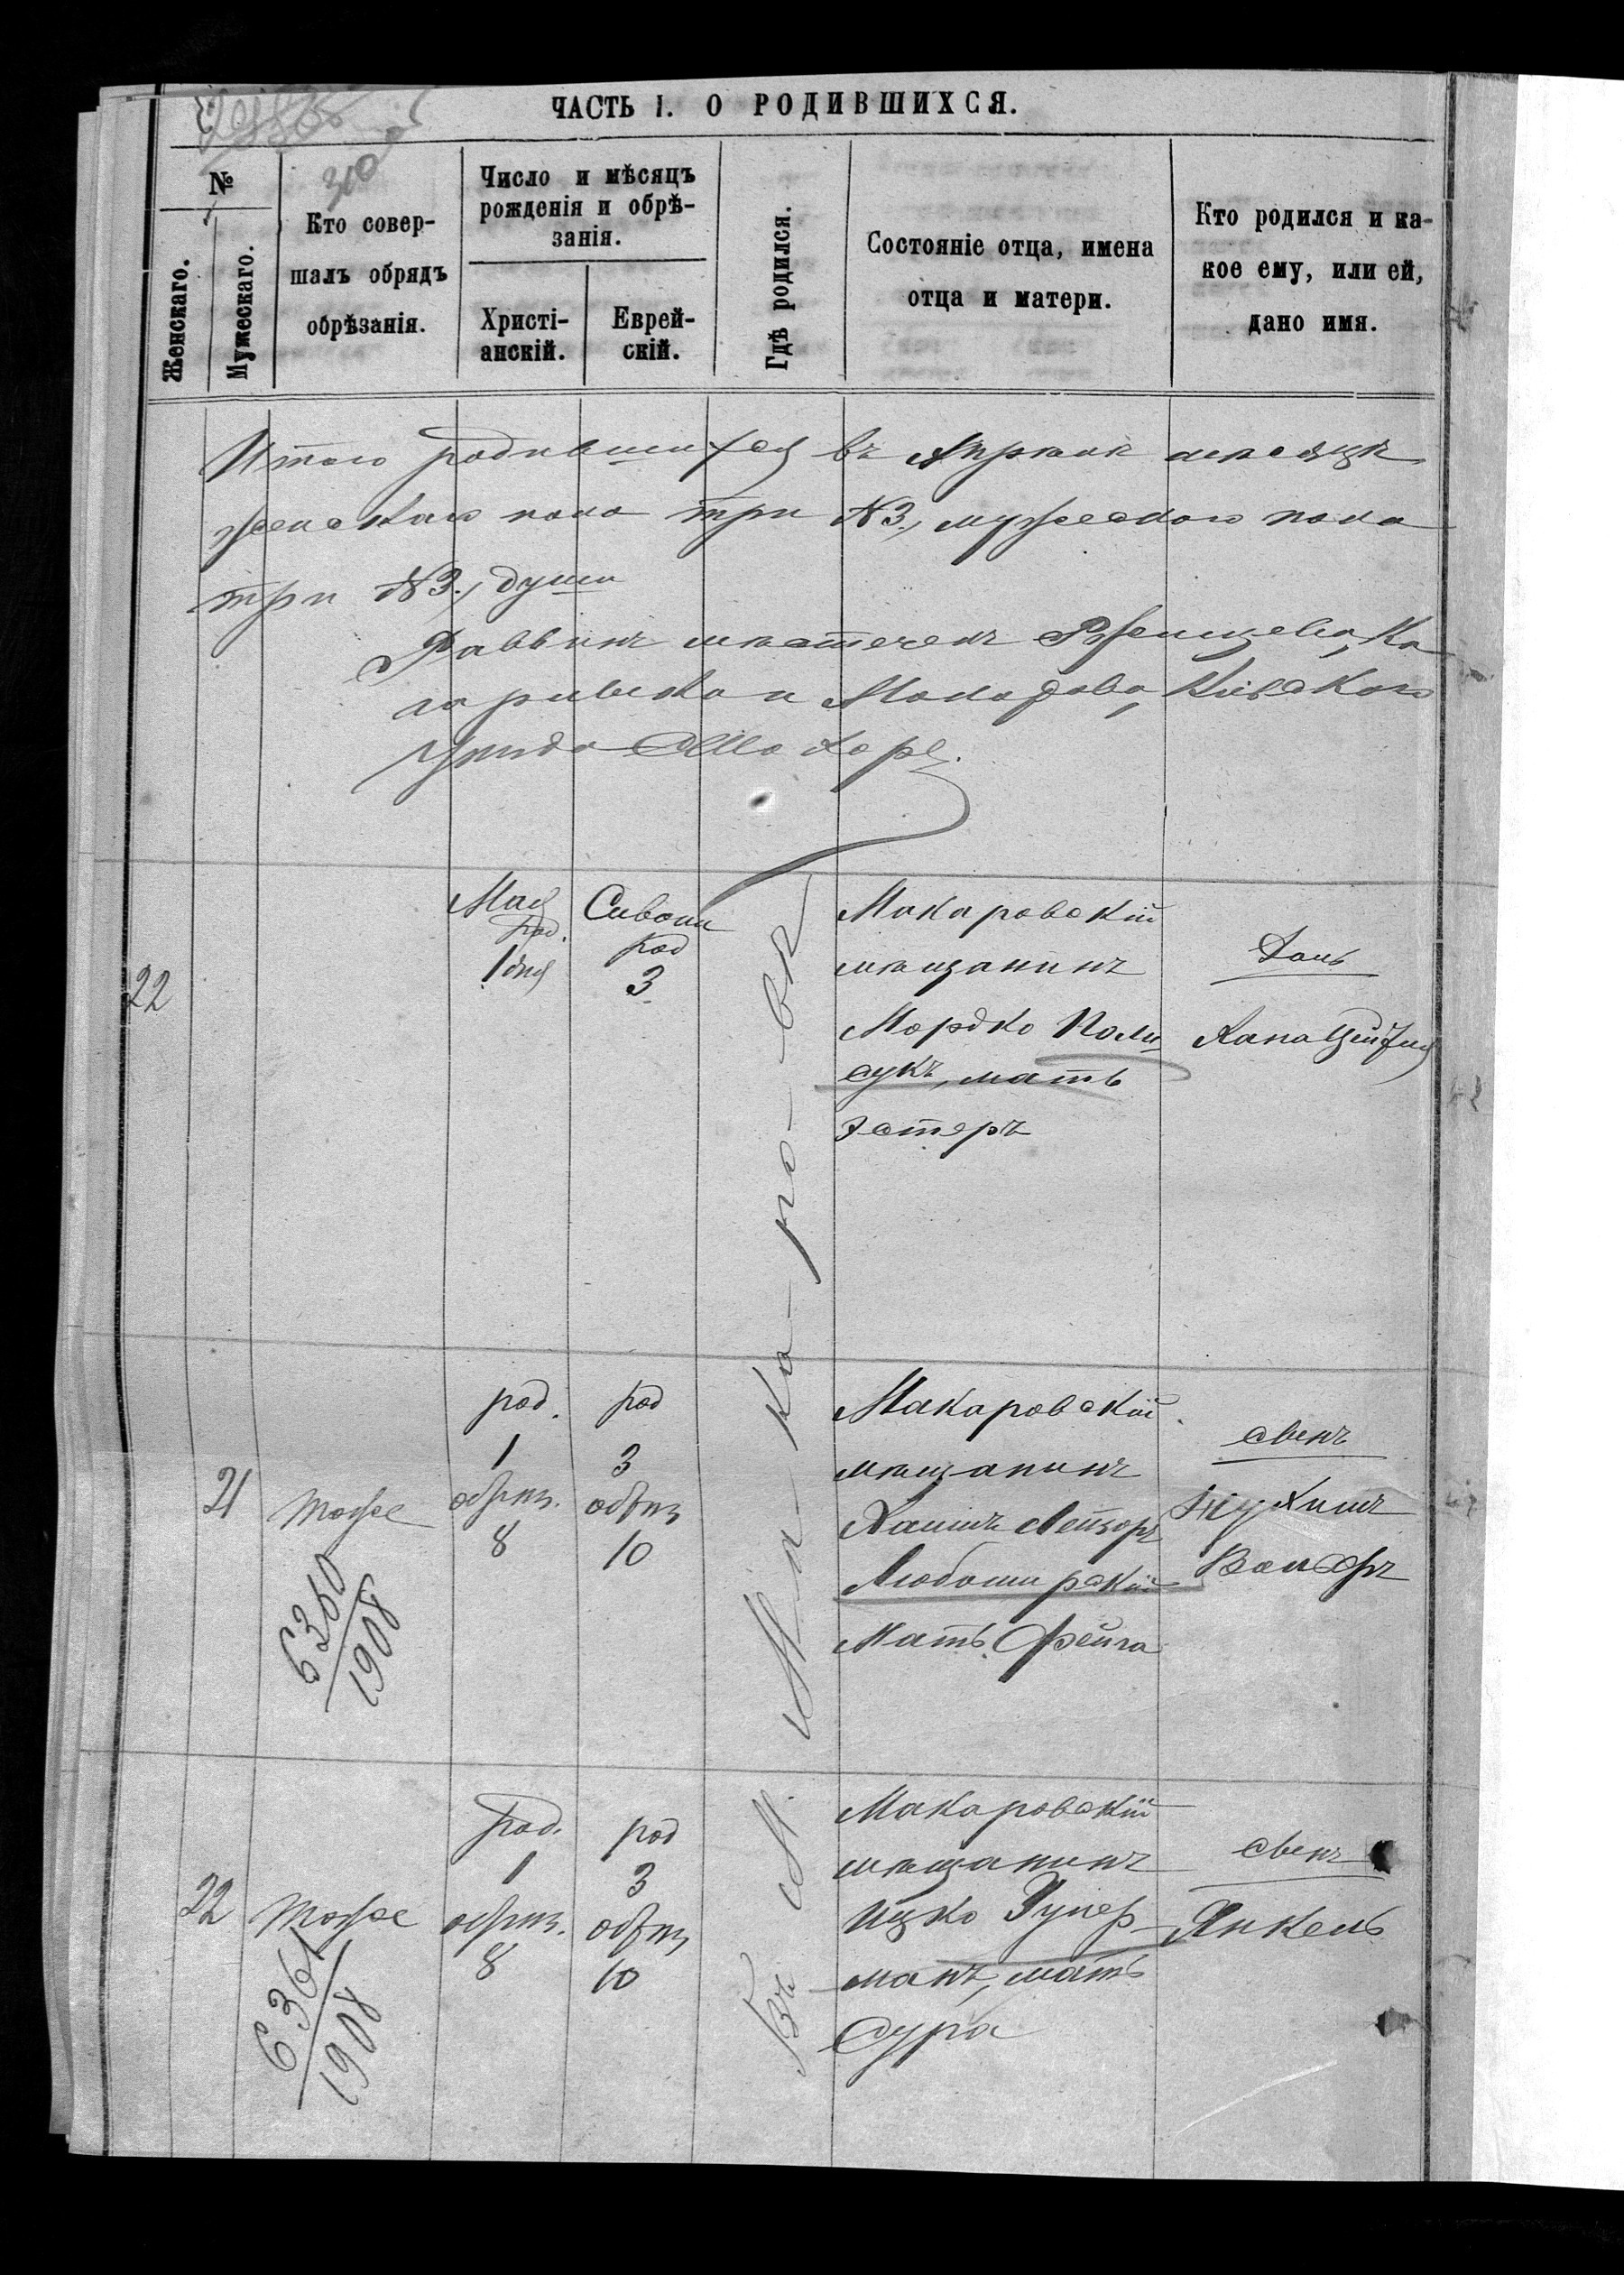 ЧАСТЬ I. О РОДИВШИХСЯ.
№
Женскаго.
Мужескаго.
Кто совер-
шалъ обрядъ
обрѣзанія.
Число и мѣсяцъ
рожденія и обрѣ-
занія.
Христі-
анскій.
Еврей-
скій.
Гдѣ родился.
Состояніе отца, имена
отца и матери.
Кто родился и ка-
кое ему, или ей,
дано имя.
310
Итого родившихся въ Апрѣлѣ мѣсяцѣ
женскаго пола три №3, мужескаго пола
три №3, души
Раввинъ мѣстечекъ Ржищева, Ка
гарлика и Макарова, Кіевскаго
Уѣзда
Въ М. Ма-ка-ро-вѣ
22
Мая
род.
1 дня
Сивона
род
3
Макаровскій
мѣщанинъ
Мордко Поли
сукъ, мать
Эстеръ
дочь
Хана Цейтля
21
тоже
6360
1908
род.
1
обрѣз.
8
род
3
обрѣз
10
Макаровскій
мѣщанинъ
Хаимъ Лейзоръ
Любоши рскій
Мать Фейга
сынъ
Нухимъ
Вольфъ
22
тоже
6361
1908
род.
1
обрѣз.
8
род
3
обрѣз
10
Макаровскій
мѣщанинъ
Ицко Зупер
манъ, мать
Сура
сынъ
Янкель